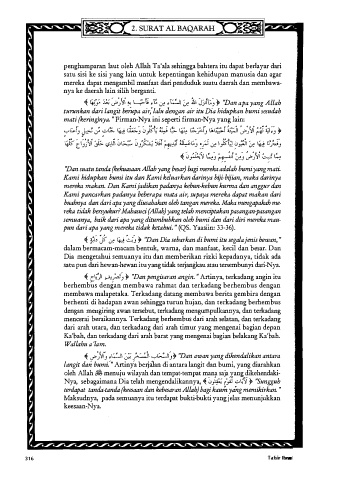 2. SURAT AL BAQARAH
penghamparan laut oleh Allah Ta'ala sehingga bahtera itu dapat berlayar dari
satu sisi ke sisi yang lain untuk kepentingan kehidupan manusia dan agar
mereka dapat mengambil manfaat dari penduduk suatu daerah dan membawa-
nya ke daerah lain silih berganti.
﴿ وَمَا أَنزَلَ اللهُ مِنَ السَّمَاءِ مِن مَّاءٍ فَأَحْيَا بِهِ الْأَرْضَ بَعْدَ مَوْتِهَا ﴾ "Dan apa yang Allah
turunkan dari langit berupa air, lalu dengan air itu Dia hidupkan bumi sesudah
mati (kering)nya." Firman-Nya ini seperti firman-Nya yang lain:
﴿ وَءَايَةٌ لَّهُمُ الْأَرْضُ الْمَيْتَةُ أَحْيَيْنَاهَا وَأَخْرَجْنَا مِنْهَا حَبًّا فَمِنْهُ يَأْكُلُونَ وَجَعَلْنَا فِيهَا جَنَّاتٍ مِّن نَّخِيلٍ وَأَعْنَابٍ
وَفَجَّرْنَا فِيهَا مِنَ الْعُيُونِ لِيَأْكُلُوا مِن ثَمَرِهِ وَمَا عَمِلَتْهُ أَيْدِيهِمْ أَفَلَا يَشْكُرُونَ سُبْحَانَ الَّذِي خَلَقَ الْأَزْوَاجَ كُلَّهَا
مِمَّا تُنبِتُ الْأَرْضُ وَمِنْ أَنفُسِهِمْ وَمِمَّا لَا يَعْلَمُونَ ﴾
"Dan suatu tanda (kekuasaan Allah yang besar) bagi mereka adalah bumi yang mati.
Kami hidupkan bumi itu dan Kami keluarkan darinya biji-bijian, maka darinya
mereka makan. Dan Kami jadikan padanya kebun-kebun kurma dan anggur dan
Kami pancarkan padanya beberapa mata air, supaya mereka dapat makan dari
buahnya dan dari apa yang diusahakan oleh tangan mereka. Maka mengapakah me-
reka tidak bersyukur? Mahasuci (Allah) yang telah menciptakan pasangan-pasangan
semuanya, baik dari apa yang ditumbuhkan oleh bumi dan dari diri mereka mau-
pun dari apa yang mereka tidak ketahui." (QS. Yaasiin: 33-36).
﴿ وَبَثَّ فِيهَا مِن كُلِّ دَابَّةٍ ﴾ "Dan Dia sebarkan di bumi itu segala jenis hewan,"
dalam bermacam-macam bentuk, warna, dan manfaat, kecil dan besar. Dan
Dia mengetahui semuanya itu dan memberikan rizki kepadanya, tidak ada
satu pun dari hewan-hewan itu yang tidak terjangkau atau tersembunyi dari-Nya.
﴿ وَتَصْرِيفِ الرِّيَاحِ ﴾ "Dan pengisaran angin." Artinya, terkadang angin itu
berhembus dengan membawa rahmat dan terkadang berhembus dengan
membawa malapetaka. Terkadang datang membawa berita gembira dengan
berhenti di hadapan awan sehingga turun hujan, dan terkadang berhembus
dengan mengiring awan tersebut, terkadang mengumpulkannya, dan terkadang
mencerai beraikannya. Terkadang berhembus dari arah selatan, dan terkadang
dari arah utara, dan terkadang dari arah timur yang mengenai bagian depan
Ka'bah, dan terkadang dari arah barat yang mengenai bagian belakang Ka'bah.
Wallahu a'lam.
﴿ وَالسَّحَابِ الْمُسَخَّرِ بَيْنَ السَّمَاءِ وَالْأَرْضِ ﴾ "Dan awan yang dikendalikan antara
langit dan bumi." Artinya berjalan di antara langit dan bumi, yang diarahkan
oleh Allah ﷻ menuju wilayah dan tempat-tempat mana saja yang dikehendaki-
Nya, sebagaimana Dia telah mengendalikannya, ﴿ لَآيَاتٍ لِّقَوْمٍ يَعْقِلُونَ ﴾ "Sungguh
terdapat tanda-tanda (keesaan dan kebesaran Allah) bagi kaum yang memikirkan."
Maksudnya, pada semuanya itu terdapat bukti-bukti yang jelas menunjukkan
keesaan-Nya.
316